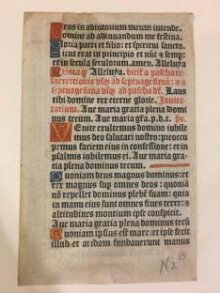 Deus in adiutorium meum intende.
Domine ad adiuuandum me festina.
Gloria patri et filio: et spiritui sancto.
Sicut erat in principio et nūc ⁊ semp:
et in secula seculorum. amen. Alleluya
Alleluya. dicit͛ a pascha
ad septuage
a septuage sima vsq ad pascha dr̄. Laus
tibi domine rex eterne glorie. Inuita-
torium. Aue maria gratia plena Domi
nus tecum. Aue maria gr̄a. p. d. ps.
VEnite exultemus domino iubile
mus deo salutari nostro: preoccu
pemus faciem eius in confessione: et in
psalmis iubilemus ei. Aue maria gra
tia plena dominus tecum.
Quoniam deus magnus dominus: et
rex magnus sup omnes deos: quoniā
non repellet dominus plebē suam: quia
in manu eius sunt omnes fines terre: ⁊
altitudines montium ipse conspicit.
Aue maria gratia plena dominus tecū
Quoniam ipsius est mare: et ipse fecit
illud et aridam fundauerunt manus